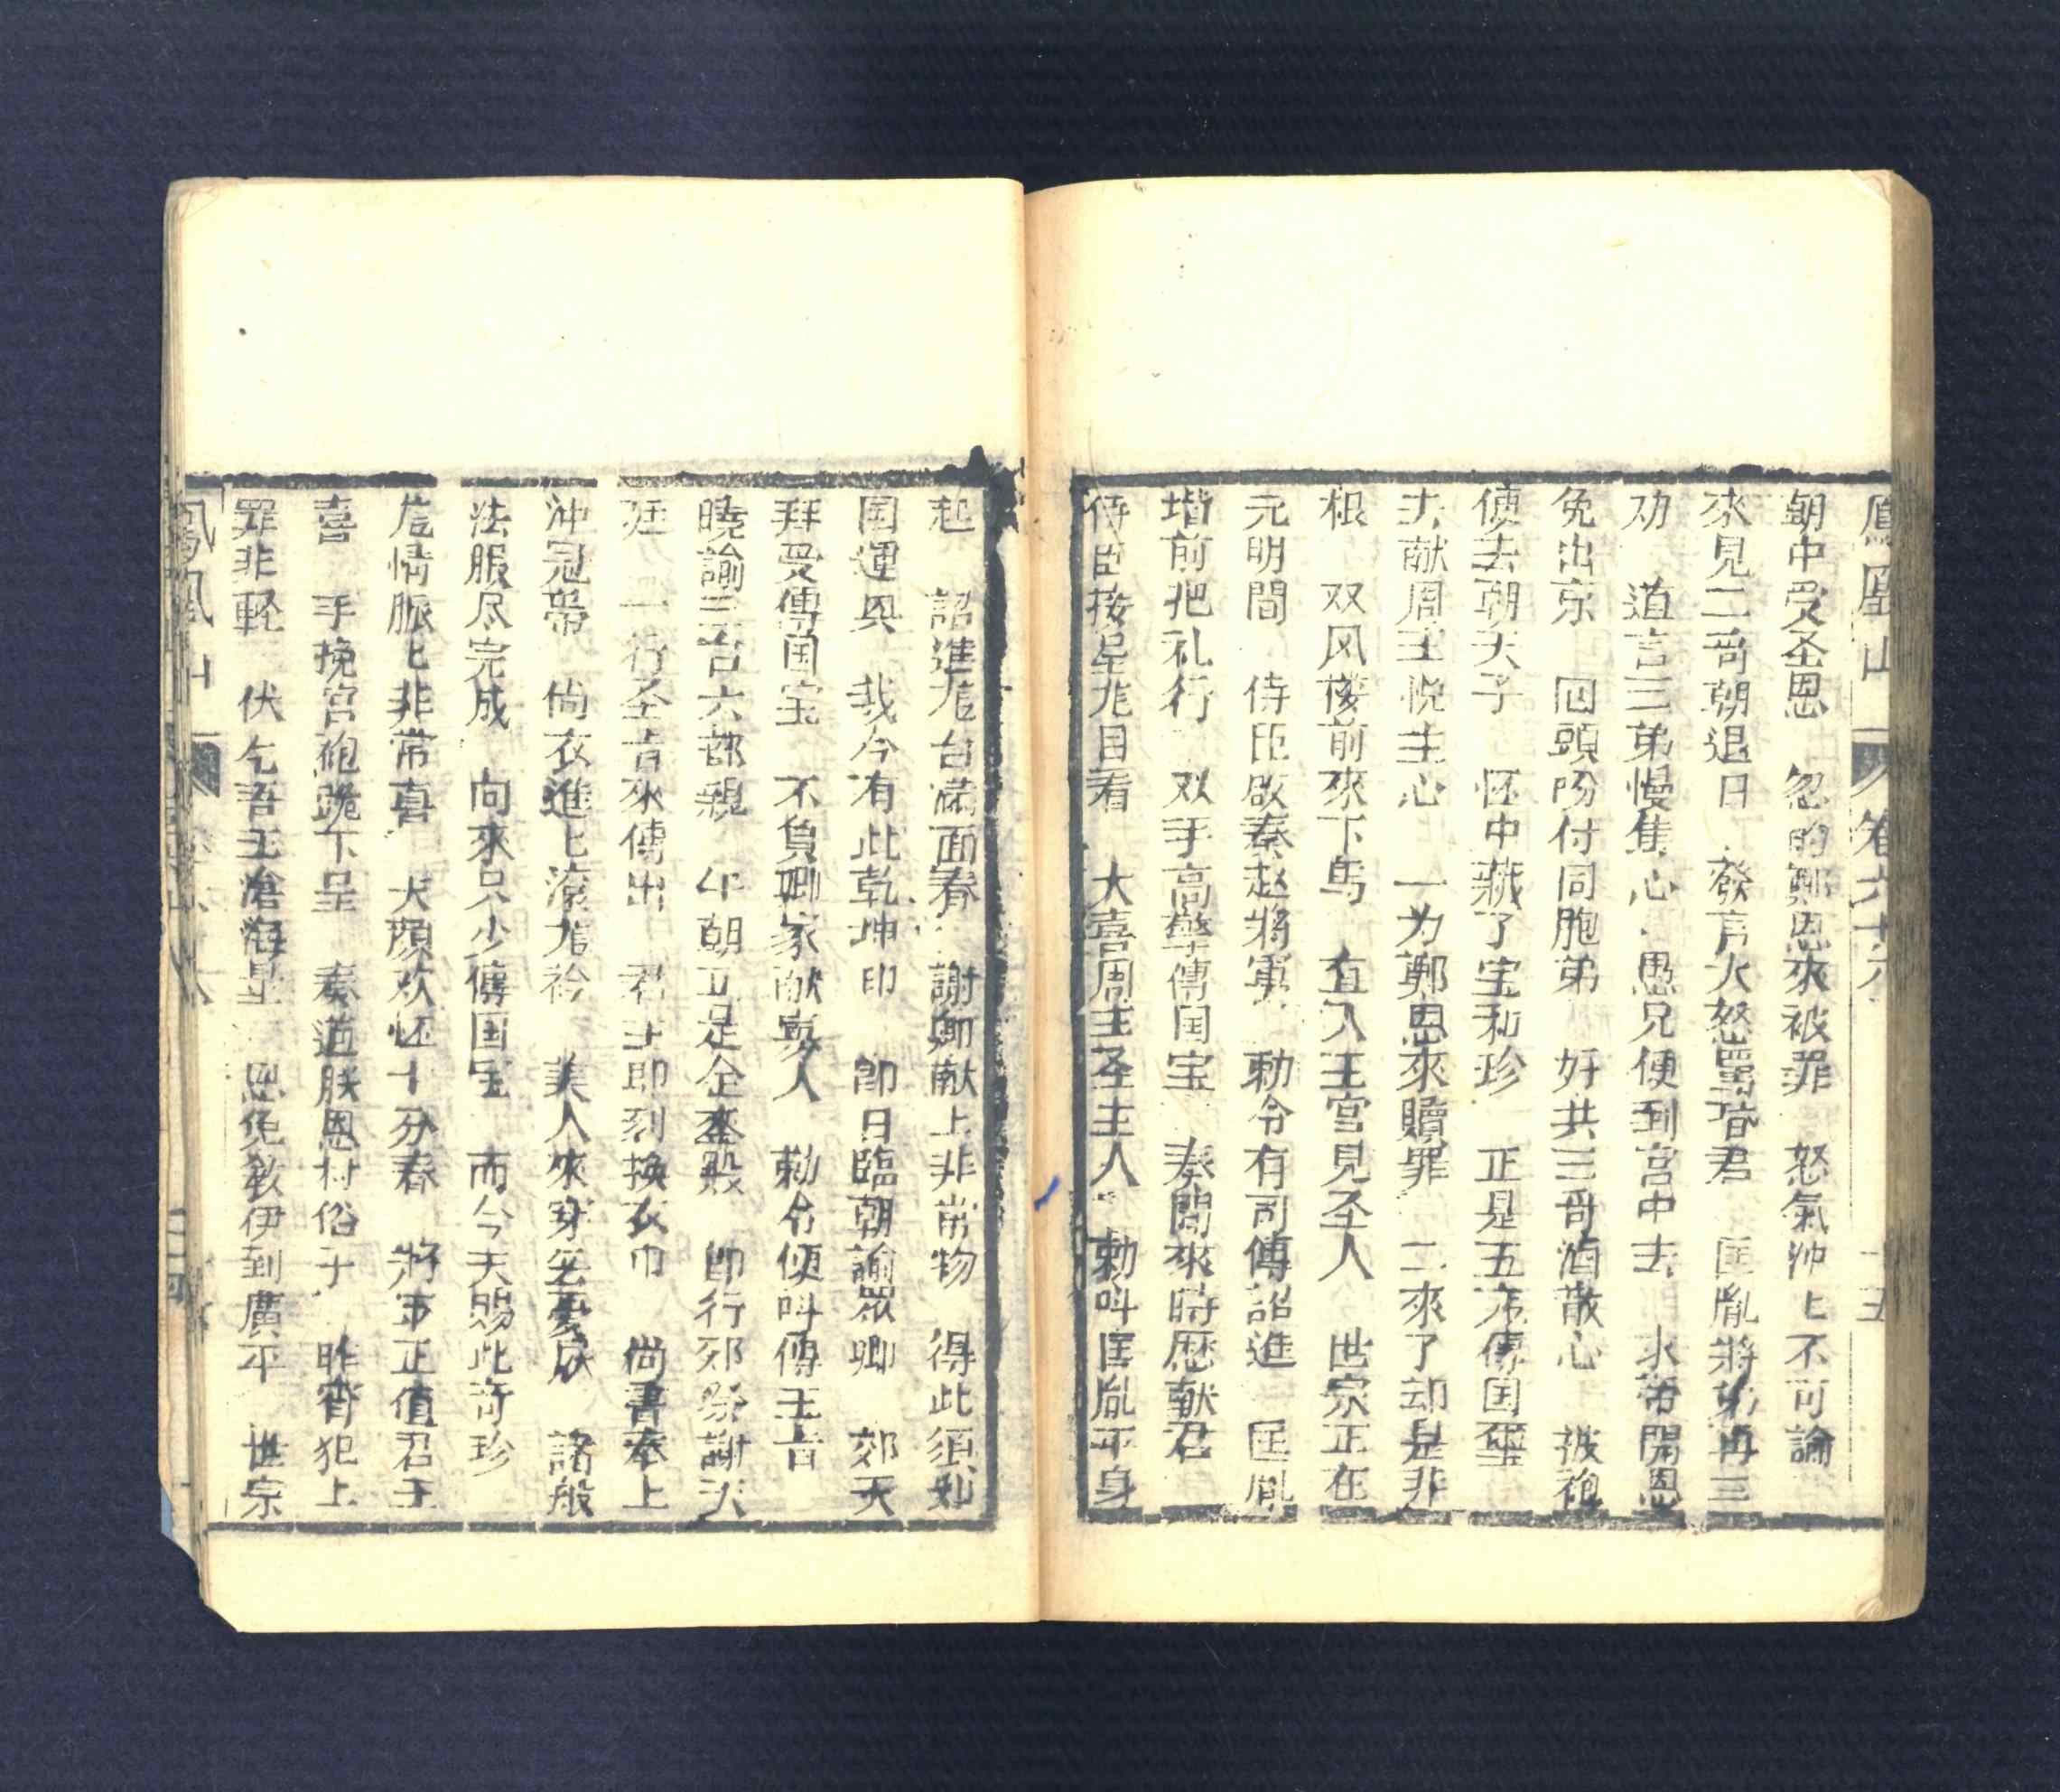 鳳凰山 卷六十六 十五
朝中受圣恩 忽的鄭恩來被罪 怒氣沖上不可論
來見二哥朝退日 發言大怒罵昏君 匡胤將弟再三
劝 道言三弟慢焦心 愚兄便到宮中去 求帝開恩
免出京 囬頭吩付同胞弟 好共三哥酒散心 披袍
便去朝天子 怀中藏了宝和珍 正是五方傳国璽
去献周主悦主心 一为鄭恩來贖罪 二來了却是非
根 双风楼前來下馬 直入王宮見圣人 世宗正在
元明閣 侍臣啟奏赵將軍 勅令有司傳詔進 匡胤
堦前把礼行 双手高擎傳国宝 奏聞來時歷献君
侍臣接呈龙目看 大喜周主圣主人 勅叫匡胤平身
起 詔進龙台滿面春 謝卿献上非常物 得此須知
国運興 我今有此乾坤印 即日臨朝諭眾卿 郊天
拜受傳国宝 不負卿家献宝人 勅令便叫傳王旨
曉諭三台六部親 午朝立足金銮殿 即行郊祭謝天
廷 一行圣旨來傳出 君王即刻換衣巾 尚書奉上
沖冠帶 尚衣進上滾龙衿 美人來穿 諸般
法服尽完成 向來只少傳国宝 而今天賜此奇珍
龙情脈上非常喜 天顏欢怀十分春 將軍正值君王
喜 手挽宮袍跪下呈 奏道朕恩村俗子 昨宵犯上
罪非軽 伏乞吾王滄海量 恩免敕伊到廣平 世宗
鳳凰山